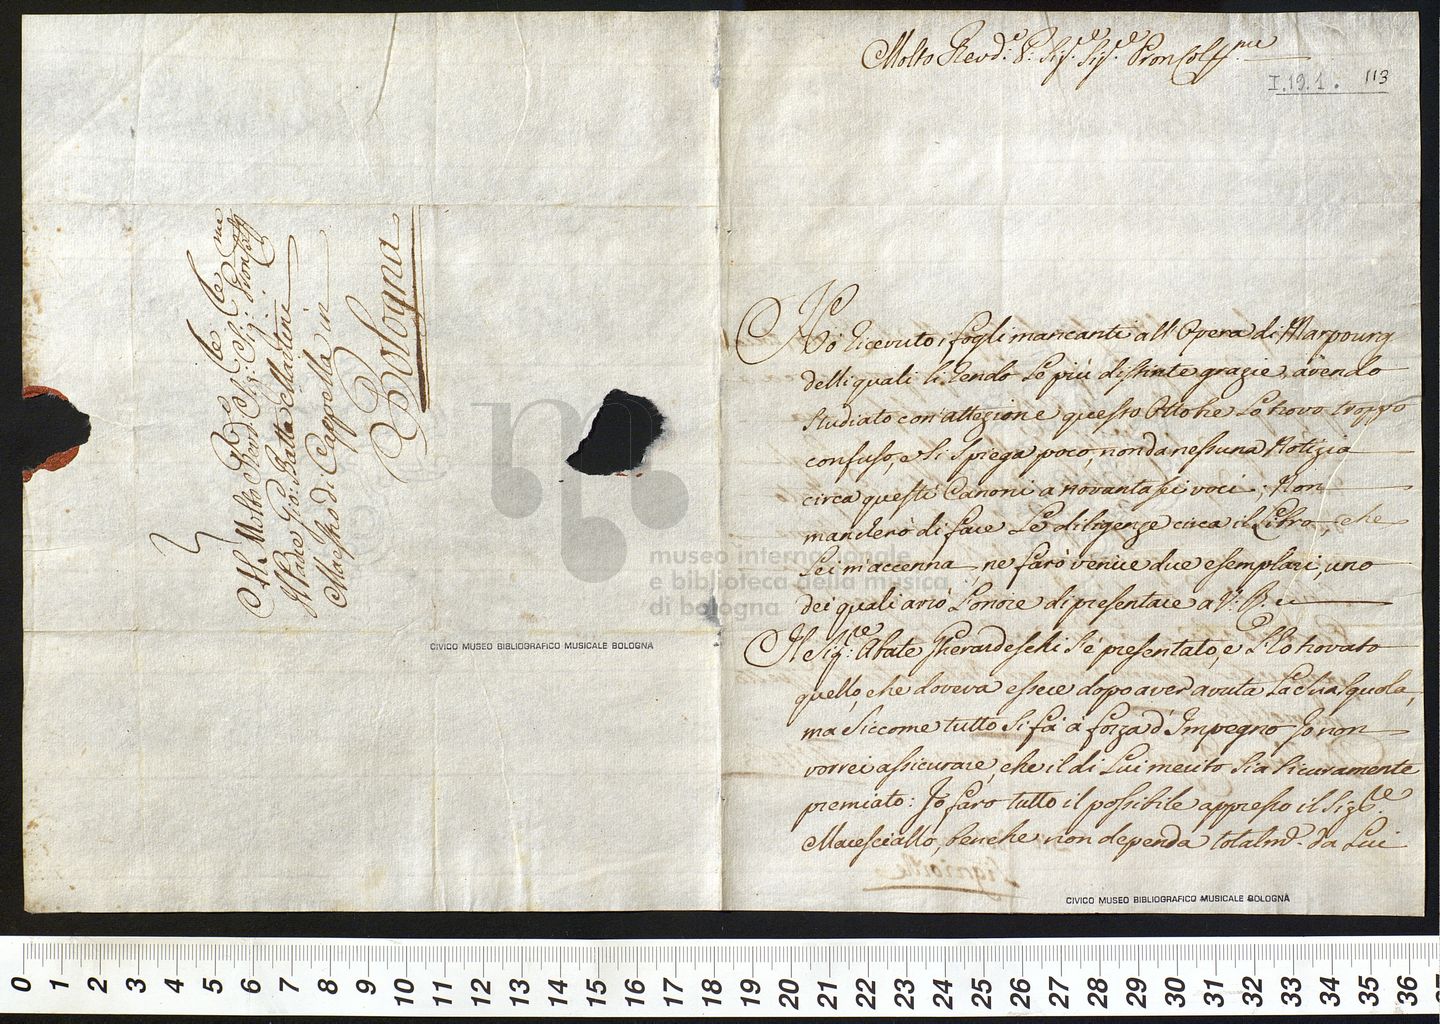 Al Molto Revd.e Pre Sig:re Sig:re Pron Coll.mo
Il Padre Gio: Batta Martini
Maestro di Cappella in
Bologna
CIVICO MUSEO BIBLIOGRAFICO MUSICALE BOLOGNA
museo internazionale
e biblioteca della musica
di bologna
Molto Revd.e P: Sig.re Sig.re Pron Coll.mo
I.19.1. 113
Hò ricevuto i fogli mancanti all'Opera di Marpourg
delli quali li rendo le più distinte grazie, avendo
studiato con attezione questo Autore lo trovo troppo
confuso, e si spiega poco, non da nessuna Notizia
circa questi Canoni a novanta sei voci. Non
mancherò di fare le diligenze circa il Libro, che
lei m'accenna, ne farò venire due esemplari, uno
dei quali avrò l'onore di presentare a V: P.
Il Sig:re Abate Gherardeschi s'è presentato, e l'hò trovato
quello, che doveva essere dopo aver avuta la sua squola,
ma siccome tutto si fà à forza d'Impegno Io non
vorrei assicurare, che il di Lui merito sia sicuramente
premiato: Io farò tutto il possibile appresso il Sig.re
Maresciallo, benche non dependa totalm.e da Lui
CIVICO MUSEO BIBLIOGRAFICO MUSICALE BOLOGNA
0 1 2 3 4 5 6 7 8 9 10 11 12 13 14 15 16 17 18 19 20 21 22 23 24 25 26 27 28 29 30 31 32 33 34 35 36 37